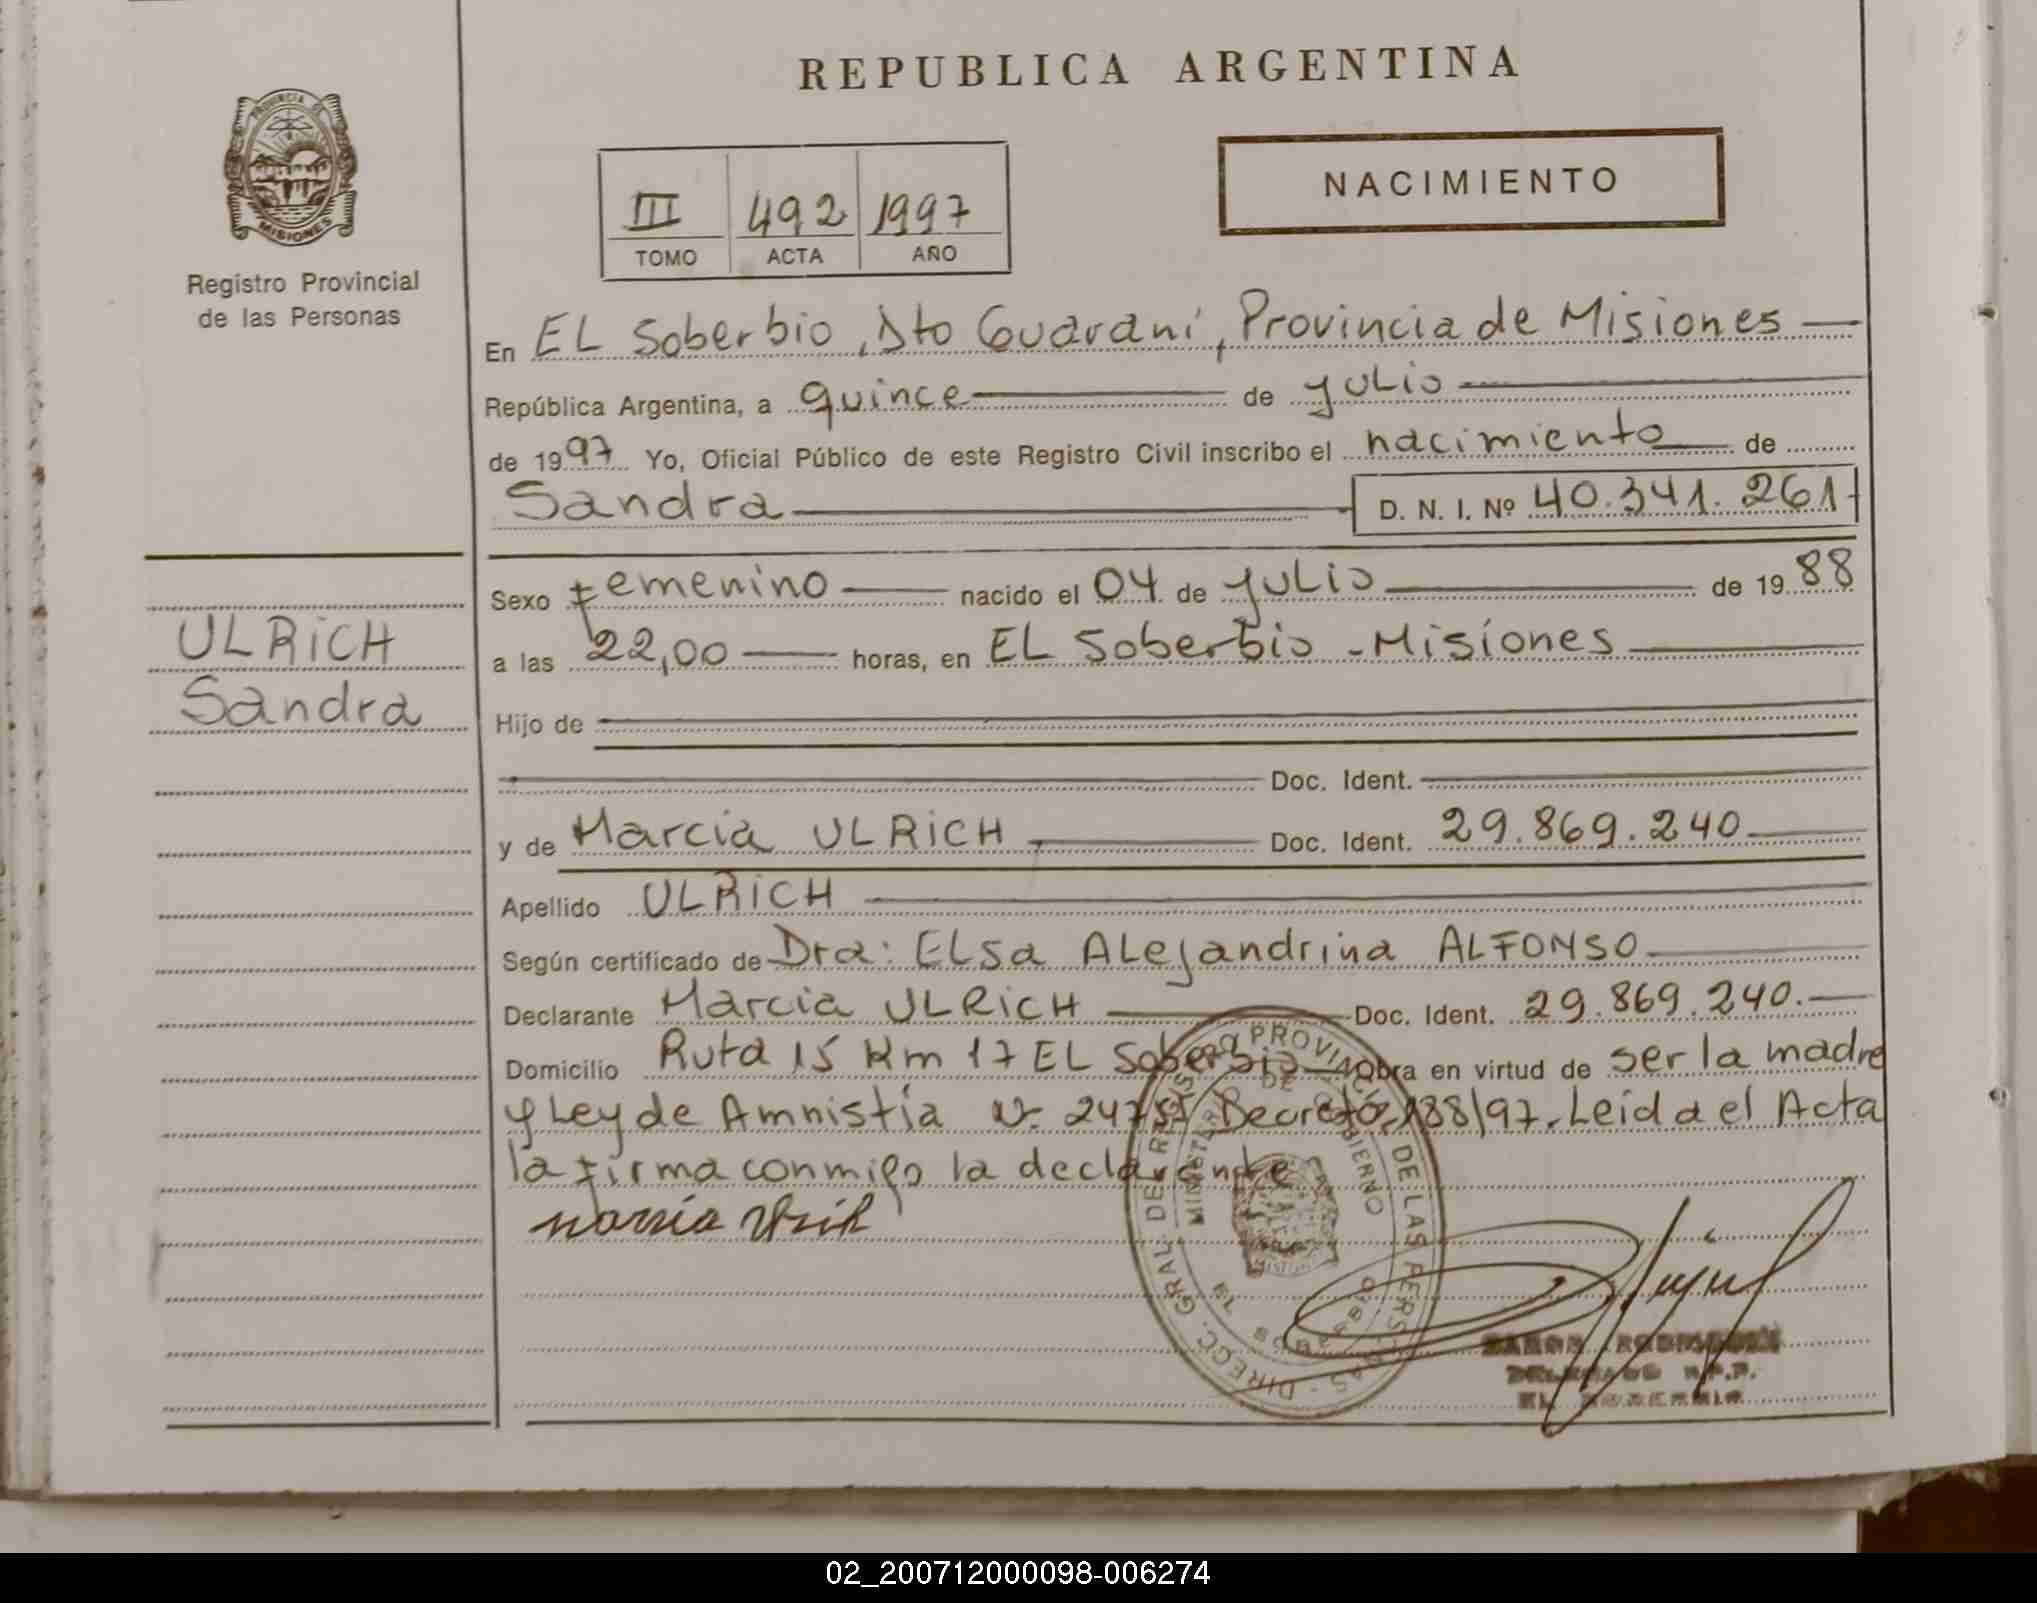 REPUBLICA ARGENTINA
PROVINCIA DE
MISIONES
Registro Provincial
de las Personas
III 492 1997
TOMO ACTA AÑO
NACIMIENTO
En EL Soberbio, Dto Guaraní, Provincia de Misiones
República Argentina, a quince de julio
de 1997 Yo, Oficial Público de este Registro Civil inscribo el nacimiento de
Sandra D. N. I. Nº 40.341.261
ULRICH
Sandra
Sexo femenino nacido el 04 de julio de 1988
a las 22,00 horas, en EL Soberbio - Misiones
Hijo de
Doc. Ident.
y de Marcia ULRICH Doc. Ident. 29.869.240
Apellido ULRICH
Según certificado de Dra: Elsa Alejandrina ALFONSO
Declarante Marcia ULRICH Doc. Ident. 29.869.240.
Domicilio Ruta 15 Km 17 EL Soberbio Obra en virtud de ser la madre
y Ley de Amnistía Decreto 188/97. Leida el Acta
la firma conmigo la declarante
DIRECC. GRAL. DE REGISTRO PROVINCIAL DE LAS PERSONAS
MINISTERIO DE GOBIERNO
EL SOBERBIO
02_200712000098-006274